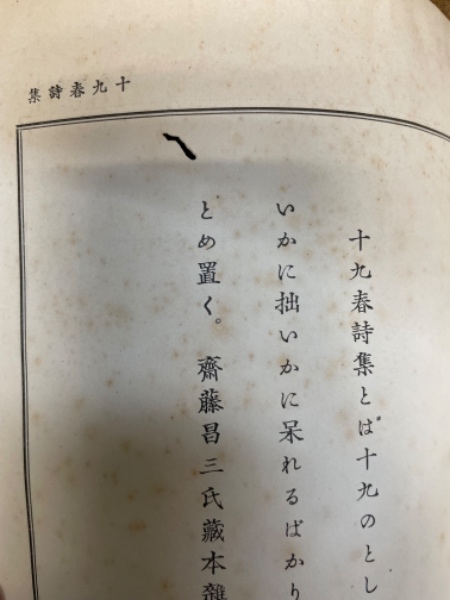 十九春詩集
十九春詩集とは十九のとし
いかに拙いかに呆れるばかり
とめ置く。 齋藤昌三氏藏本雜